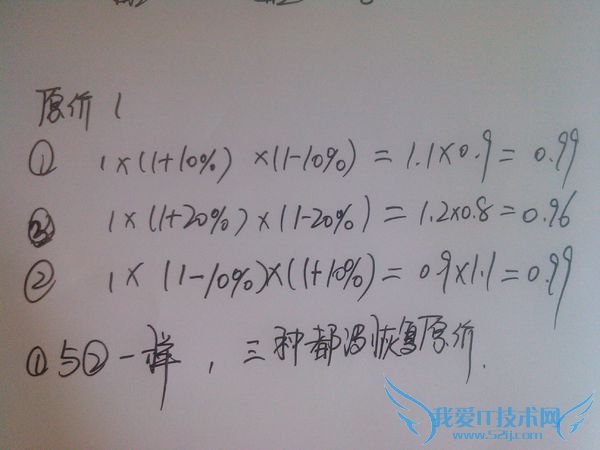 原价1
① 1×(1+10%)×(1-10%)=1.1×0.9=0.99
③ 1×(1+20%)×(1-20%)=1.2×0.8=0.96
② 1×(1-10%)×(1+10%)=0.9×1.1=0.99
①与②一样,三种都没恢复原价.
我爱IT技术网
www.52ij.com